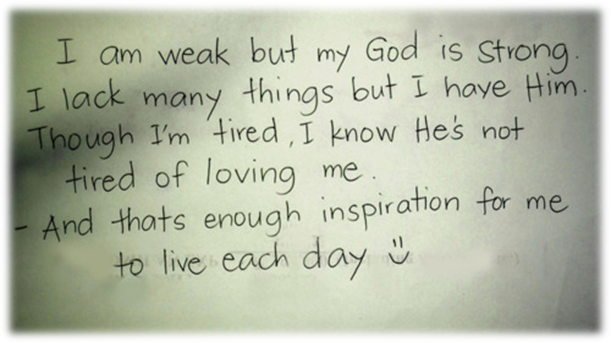 I am weak but my God is strong.
I lack many things but I have Him.
Though I'm tired, I know He's not
tired of loving me.
- And thats enough inspiration for me
to live each day ¨)